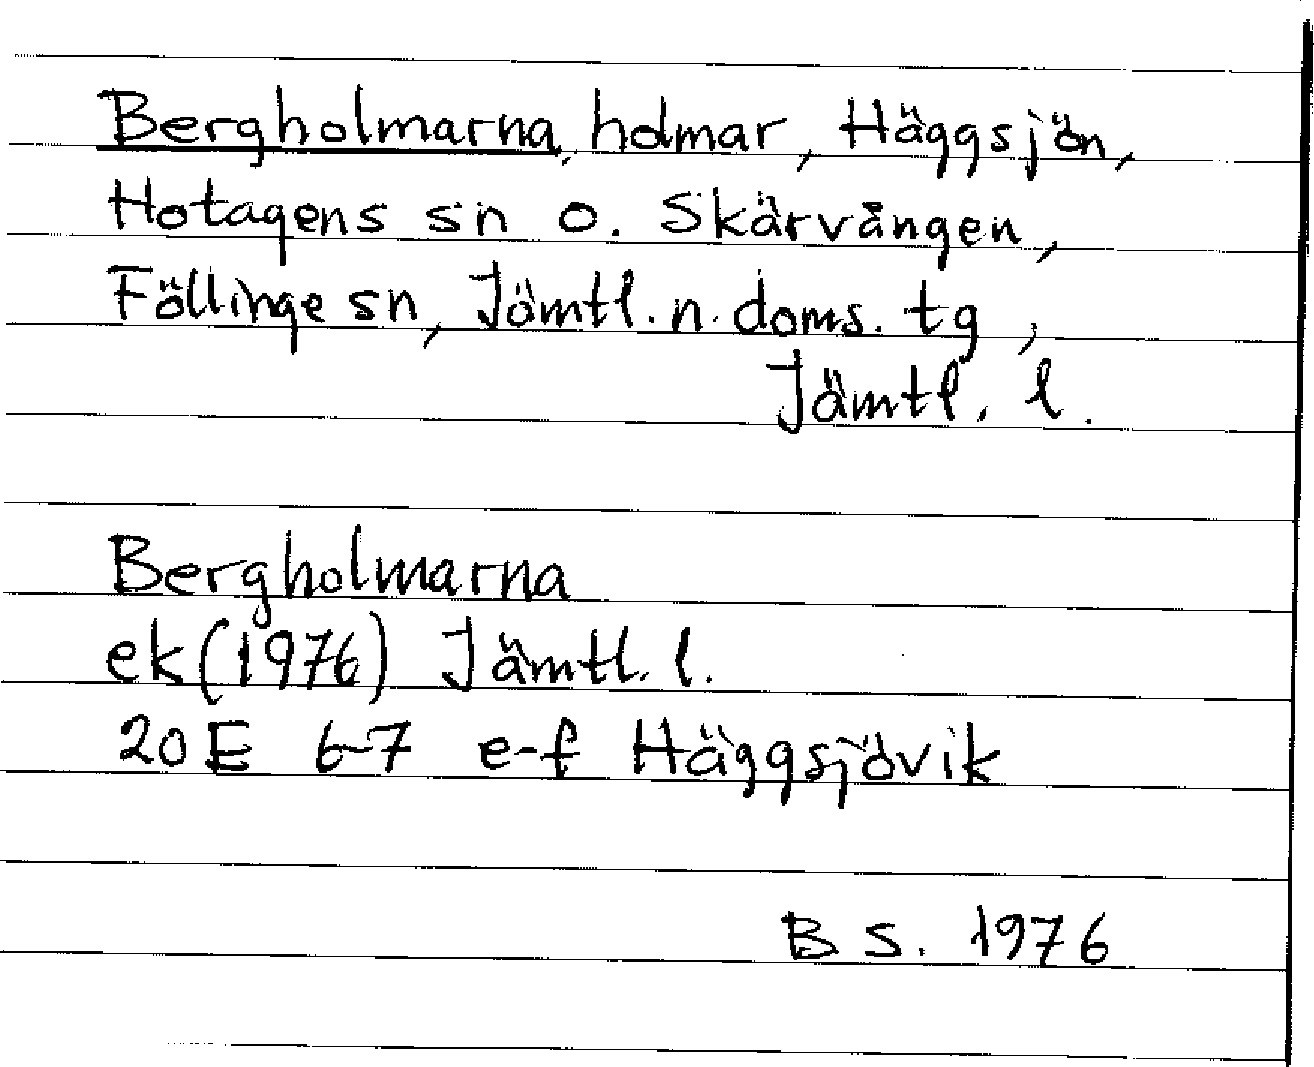 Bergholmarna, holmar, Häggsjön,
Hotagens sn o. Skärvången,
Föllinge sn, Jämtl. n. doms. tg,
Jämtl. l.
Bergholmarna
ek (1976) Jämtl. l.
20E 6-7 e-f Häggsjövik
B S. 1976